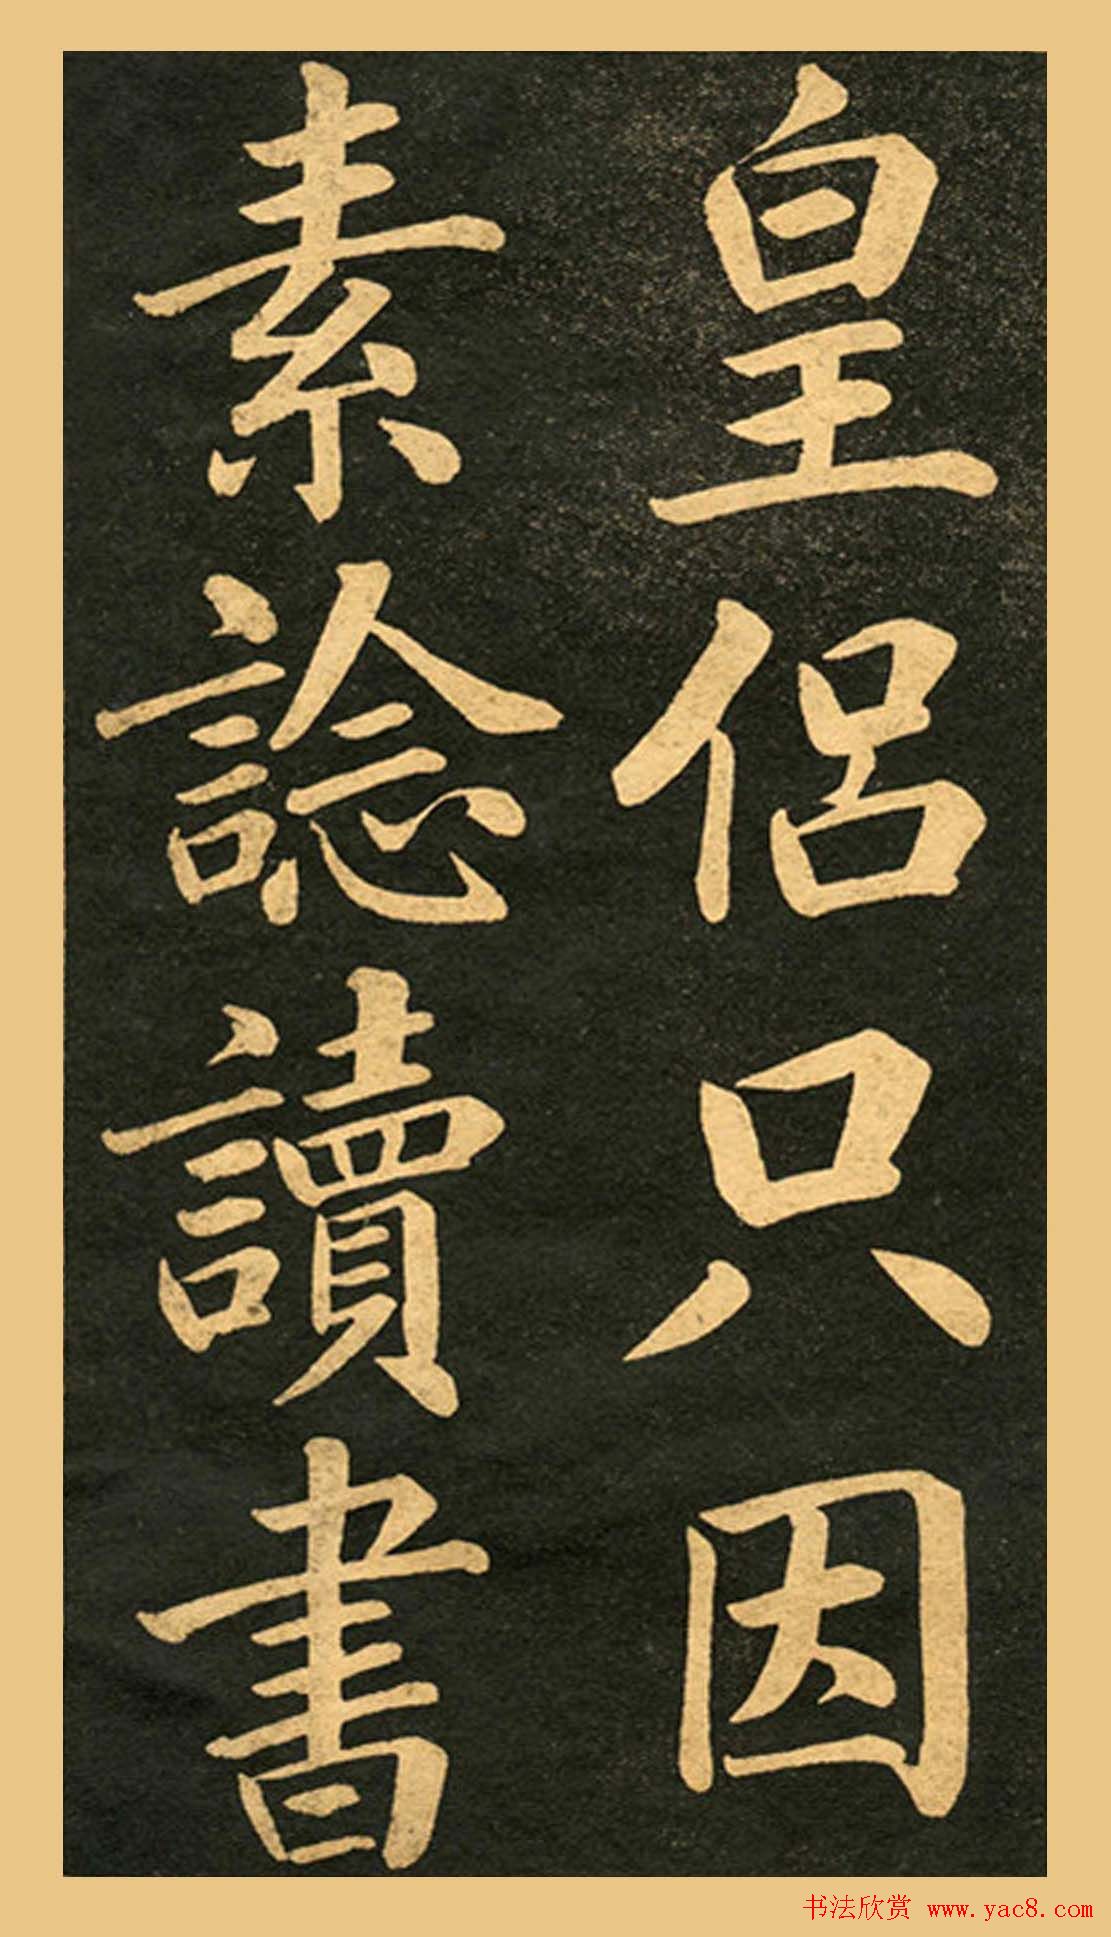 皇侣只因
素諗讀書
书法欣赏 www.yac8.com